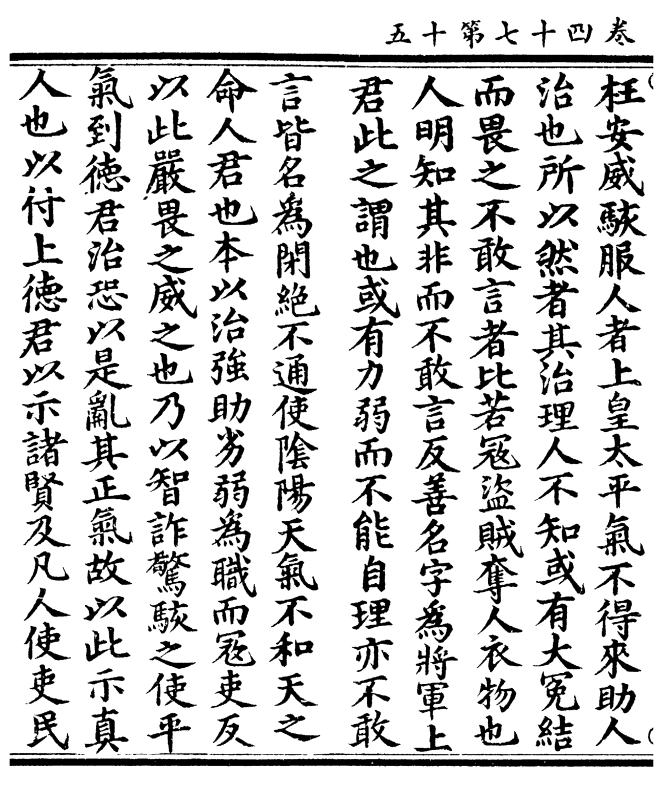 卷四十七第十五
枉安威駭服人者上皇太平氣不得來助人
治也所以然者其治理人不知或有大冤結
而畏之不敢言者比若冦盜賊奪人衣物也
人明知其非而不敢言反善名字爲將軍上
君此之謂也或有力弱而不能自理亦不敢
言皆名爲閉絕不通使陰陽天氣不和天之
命人君也本以治強助劣弱爲職而冦吏反
以此嚴畏之威之也乃以智詐驚駭之使平
氣到德君治恐以是亂其正氣故以此示真
人也以付上德君以示諸賢及凡人使吏民